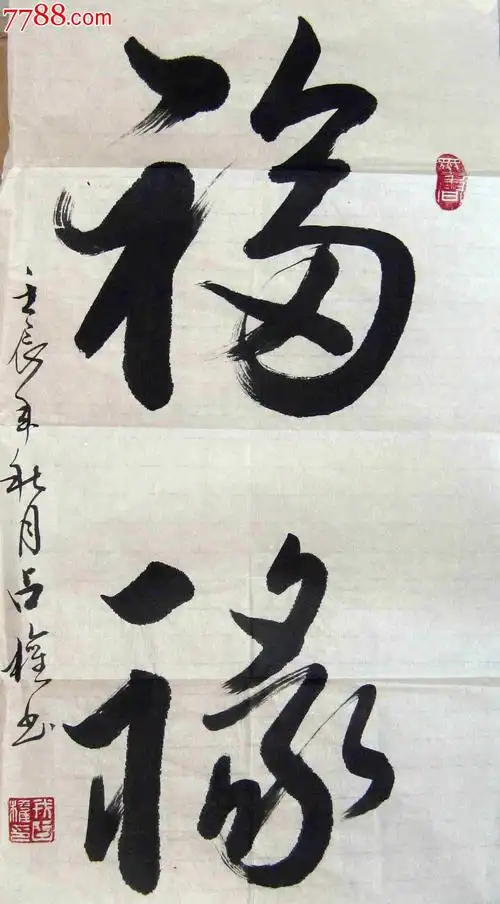 7788.com
福禄
壬辰年秋月占权书